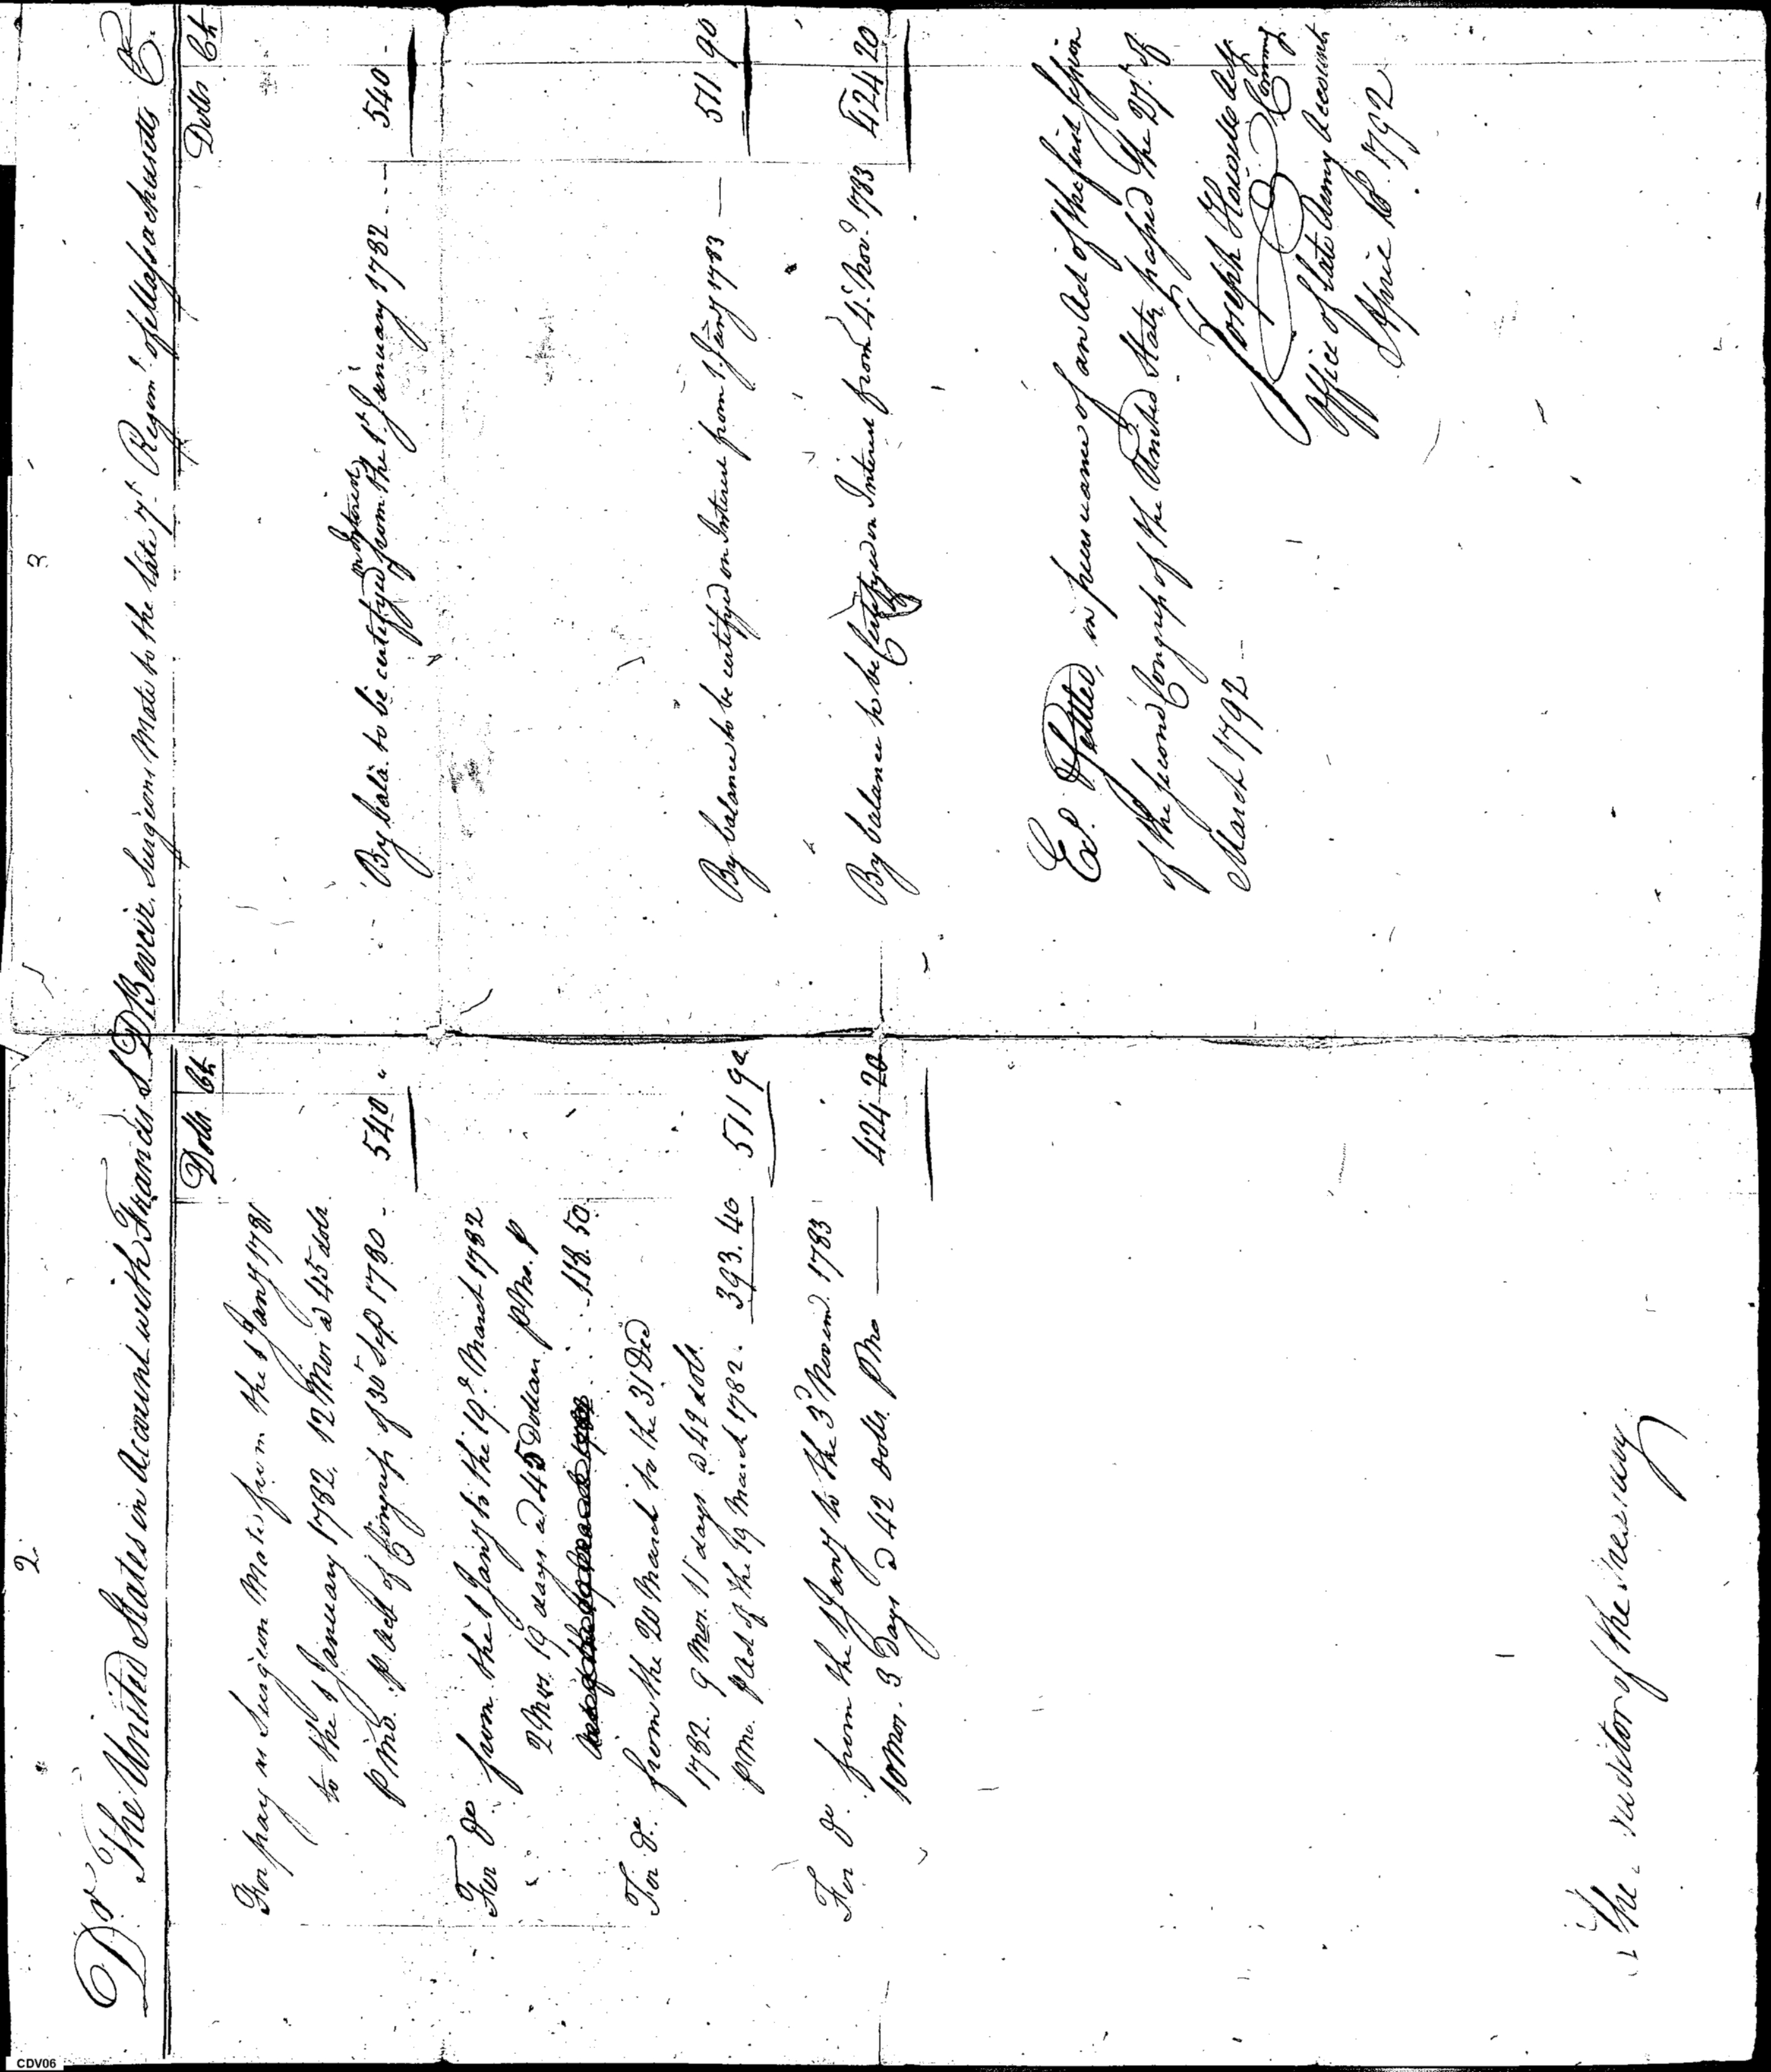 2
Dr. The United States in Account with Francis L. DBeveir. Surgeons Mate to the late 7t. Regimt. of Massachusetts Cr.
Dolls Cts
For pay as Surgeon Mate from the 1 Jany 1781
to the 1 January 1782, 12 Mos a 45 dols.
p mo. p Act of Congress of 30t Sep. 1780 - 540 "
For do. from the 1 Jany to the 19th March 1782
2 Mos. 19 days a 45 Dollars p Mo. p
118.50
For do. from the 20 March to the 31 Dec
1782. 9 Mos. 11 days a 42 dols.
p mo. p Act of the 19 March 1782. 393.40 511 90
For do. from the 1 Jany to the 3d Novem. 1783
10 Mos. 3 Days a 42 dolls. p Mo 424 20
The Auditor of the Treasury
3
Dolls Cts
on Interest
By bala. to be certifyed from the 1st January 1782 - - 540 -
By balance to be certifyed on Interest from 1. Jany 1783 511 90
By balance to be Certifyed on Interest from 4t. Novr. 1783 424 20
Ex. & Settled, in pursuance of an Act of the first Session
of the second Congress of the United States passed the 27t. of
March 1792 -
Joseph Howell actg
Commr
Office of late Army Accounts
April 1792
CDV06